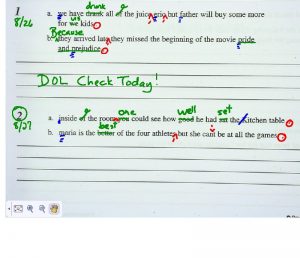 drunk
1 a. we have drank all of the juice erio but father will buy some more
8/26 us
for we kids
Because
b. they arrived late they missed the beginning of the movie pride
and prejudice
DOL Check Today!
one well set
2 a. inside of the room you could see how good he had sat the kitchen table
8/27 best
b. maria is the better of the four athletes but she can't be at all the games